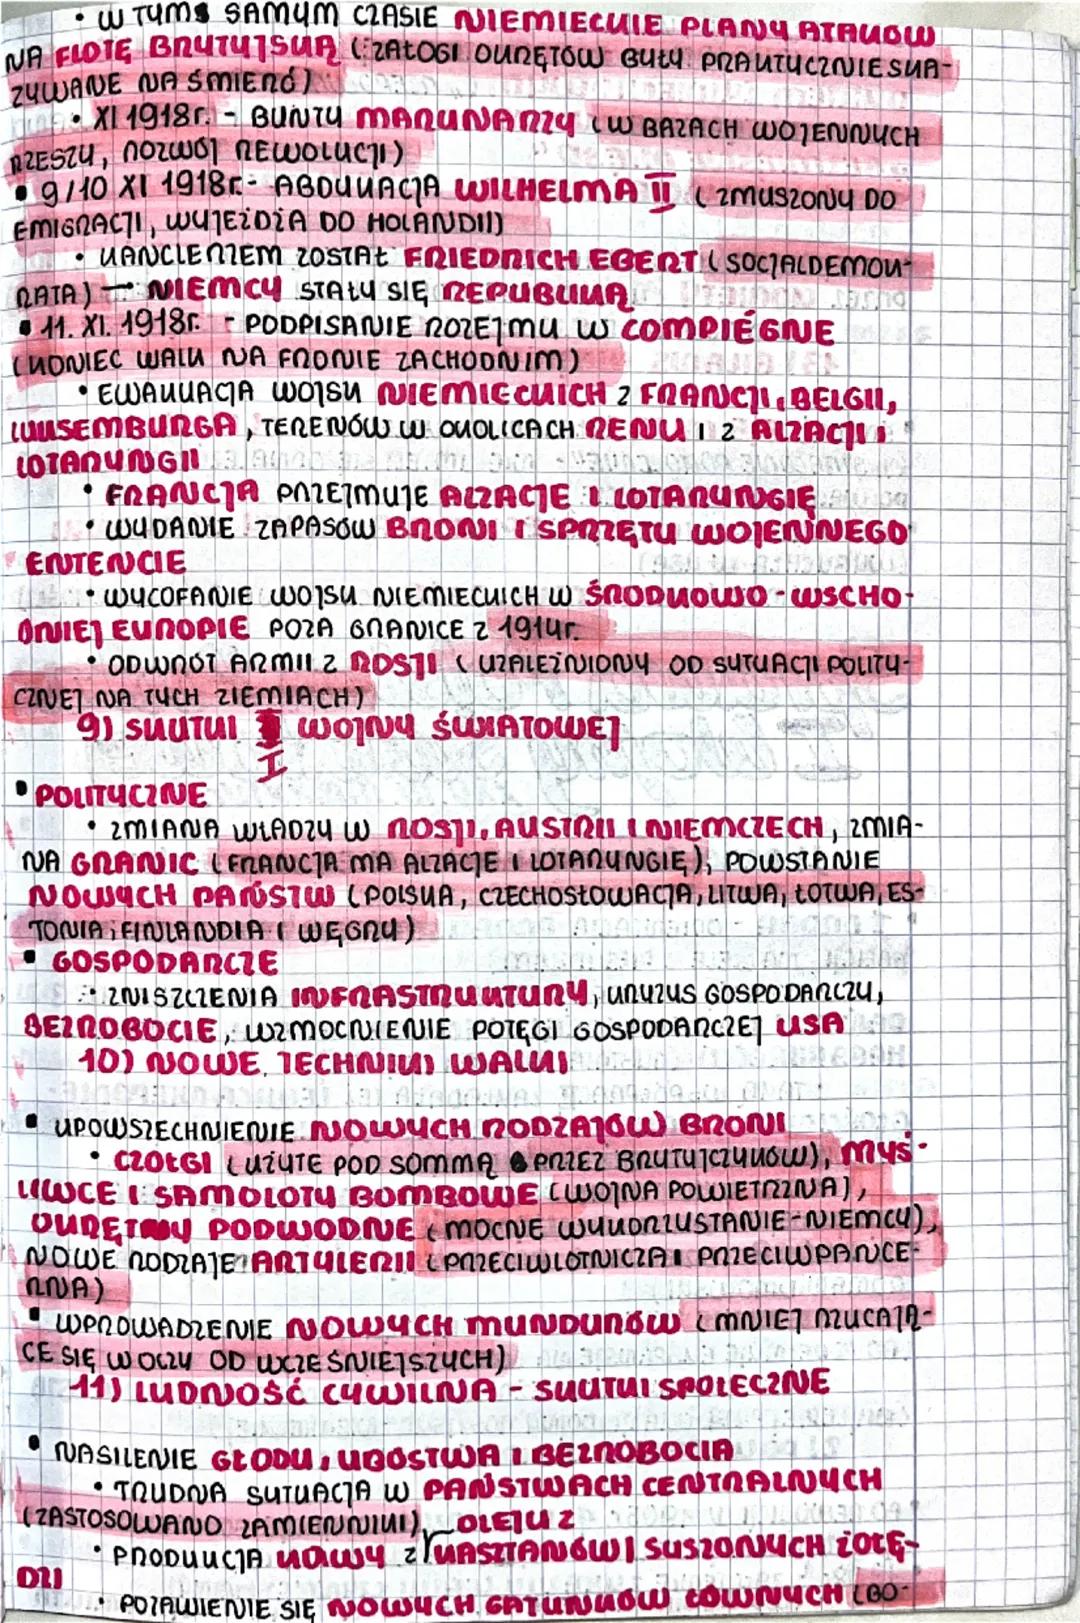 • W TYM SAMYM CZASIE NIEMIECKIE PLANY ATAKÓW
NA FLOTĘ BRYTYJSKĄ (ZAŁOGI OKRĘTÓW BYŁY PRAKTYCZNIE SKA-
ZYWANE NA ŚMIERĆ)
• XI 1918r. - BUNTY MARYNARZY (W BAZACH WOJENNYCH
RZESZY, ROZWÓJ REWOLUCJI)
• 9/10 XI 1918r. - ABDYKACJA WILHELMA II (ZMUSZONY DO
EMIGRACJI, WYJEŻDŻA DO HOLANDII)
• KANCLERZEM ZOSTAŁ FRIEDRICH EBERT (SOCJALDEMOK-
RATA) → NIEMCY STAŁY SIĘ REPUBLIKĄ
• 11. XI. 1918r. - PODPISANIE ROZEJMU W COMPIÉGNE
(KONIEC WALK NA FRONIE ZACHODNIM)
• EWAKUACJA WOJSK NIEMIECKICH Z FRANCJI, BELGII,
LUKSEMBURGA, TERENÓW W OKOLICACH RENU I Z ALZACJI I
LOTARYNGII
• FRANCJA PRZEJMUJE ALZACJE I LOTARYNGIĘ
• WYDANIE ZAPASÓW BRONI I SPRZĘTU WOJENNEGO
ENTENCIE
• WYCOFANIE WOJSK NIEMIECKICH W ŚRODKOWO-WSCHO-
DNIEJ EUROPIE POZA GRANICE Z 1914r.
• ODWRÓT ARMII Z ROSJI (UZALEŻNIONY OD SYTUACJI POLITY-
CZNEJ NA TYCH ZIEMIACH)
9) SKUTKI I WOJNY ŚWIATOWEJ
• POLITYCZNE
• ZMIANA WŁADZY W ROSJI, AUSTRII I NIEMCZECH, ZMIA-
NA GRANIC (FRANCJA MA ALZACJE I LOTARYNGIĘ), POWSTANIE
NOWYCH PAŃSTW (POLSKA, CZECHOSŁOWACJA, LITWA, ŁOTWA, ES-
TONIA, FINLANDIA I WĘGRY)
• GOSPODARCZE
• ZNISZCZENIA INFRASTRUKTURY, KRYZYS GOSPODARCZY,
BEZROBOCIE, WZMOCNIENIE POTĘGI GOSPODARCZEJ USA
10) NOWE TECHNIKI WALKI
• UPOWSZECHNIENIE NOWYCH RODZAJÓW BRONI
• CZOŁGI (UŻYTE POD SOMMĄ PRZEZ BRYTYJCZYKÓW), MYŚ-
LIWCE I SAMOLOTY BOMBOWE (WOJNA POWIETRZNA),
OKRĘTY PODWODNE (MOCNE WYKORZYSTANIE - NIEMCY),
NOWE RODZAJE ARTYLERII (PRZECIWLOTNICZA I PRZECIWPANCE-
RNA)
• WPROWADZENIE NOWYCH MUNDURÓW (MNIEJ RZUCAJĄ-
CE SIĘ W OCZY OD WCZEŚNIEJSZYCH)
11) LUDNOŚĆ CYWILNA - SKUTKI SPOŁECZNE
• NASILENIE GŁODU, UBÓSTWA I BEZROBOCIA
• TRUDNA SYTUACJA W PAŃSTWACH CENTRALNYCH
(ZASTOSOWANO ZAMIENNIKI) OLEJU Z
• PRODUKCJA KAWY Z KASZTANÓW I SUSZONYCH ŻOŁĘ-
DZI
• POJAWIENIE SIĘ NOWYCH GATUNKÓW ŁOWNYCH (BO-